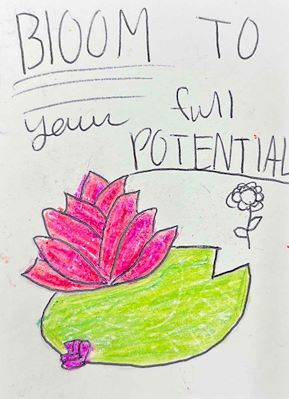 BlOOM TO
your full
POTENTIAL